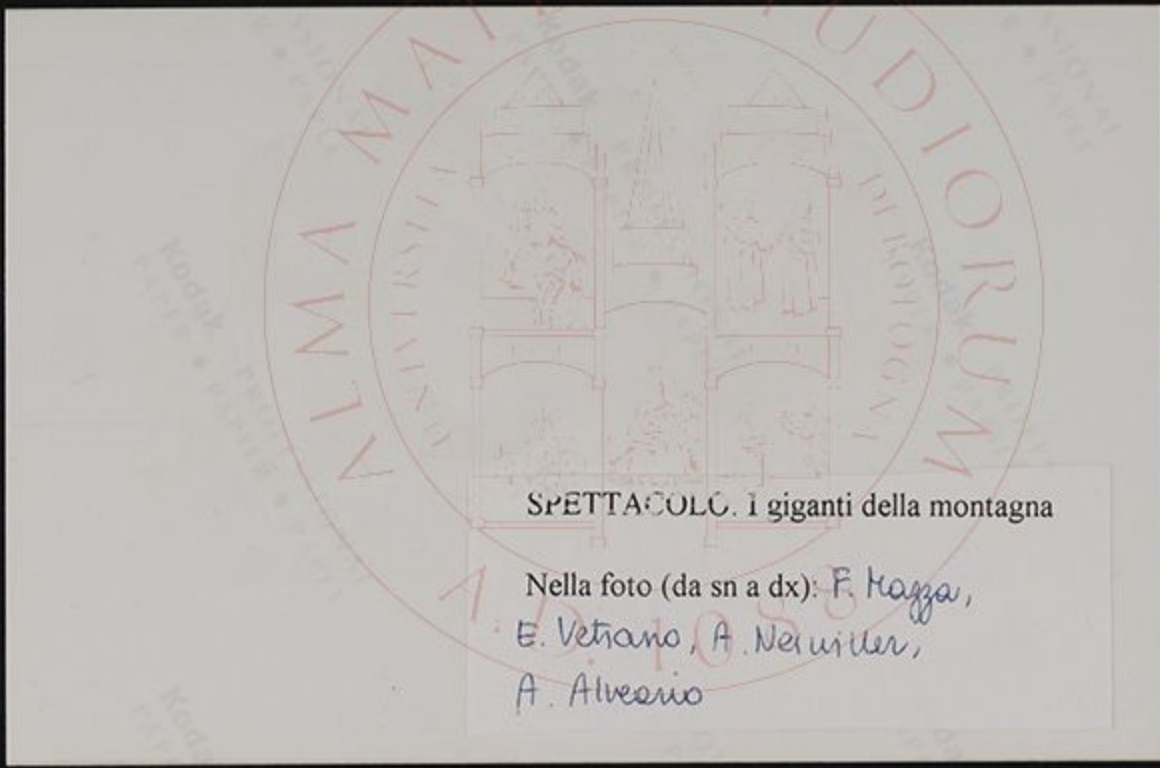 ALMA MATER STUDIORUM
UNIVERSITÀ DI BOLOGNA
A.D. 1088
Kodak
SPETTACOLO. I giganti della montagna
Nella foto (da sn a dx): F. Mazza,
E. Vetrano, A. Neiwiller,
A. Alveario